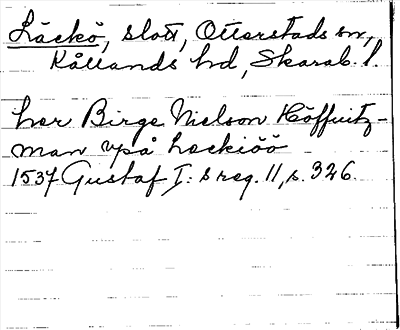 Läckö, slott, Otterstads sn,
Kållands hd, Skarab. l.
her Birge Nielson Höffuitz-
man vpå Leckiöö
1537 Gustaf I: s reg. 11, s. 326.